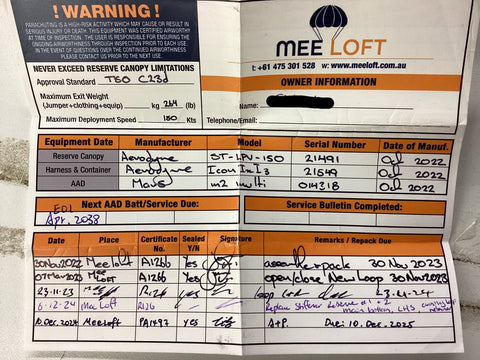 ! WARNING !
PARACHUTING IS A HIGH-RISK ACTIVITY WHICH MAY CAUSE OR RESULT IN
SERIOUS INJURY OR DEATH. THIS EQUIPMENT WAS CERTIFIED AIRWORTHY
AT TIME OF INSPECTION. THE USER IS RESPONSIBLE FOR ENSURING THE
ONGOING AIRWORTHINESS THROUGH INSPECTION PRIOR TO EACH USE.
IN THE EVENT OF QUESTIONS OVER THE CONTINUED AIRWORTHINESS
PLEASE CONTACT US PRIOR TO USE.
MEE LOFT
t: +61 475 301 528 w: www.meeloft.com.au
NEVER EXCEED RESERVE CANOPY LIMITATIONS
Approval Standard TSO C23d
Maximum Exit Weight
(Jumper+clothing+equip) kg 264 (lb)
Maximum Deployment Speed 150 Kts
OWNER INFORMATION
Name:
Telephone/Email:
Equipment Date Manufacturer Model Serial Number Date of Manuf.
Reserve Canopy Aerodyne ST-LPV-150 21491 Oct 2022
Harness & Container Aerodyne Icon 21549 Oct 2022
AAD Mars m2 multi 014318 Oct 2022
Next AAD Batt/Service Due: Service Bulletin Completed:
Apr. 2038
Date Place Certificate No. Sealed Y/N Signature Remarks / Repack Due
30 Nov 2022 Mee Loft A1266 Yes repack 30 Nov 2023
Mee Loft A1266 Yes open/close New Loop 30 Nov 2023
23-11-23 yes 23-11-24
6-12-24 Mee Loft yes Replace Stiffener Reserve #1 + 2
10. Dec. 2024 Meeloft PA1497 yes A+P. Due: 10. Dec. 2025